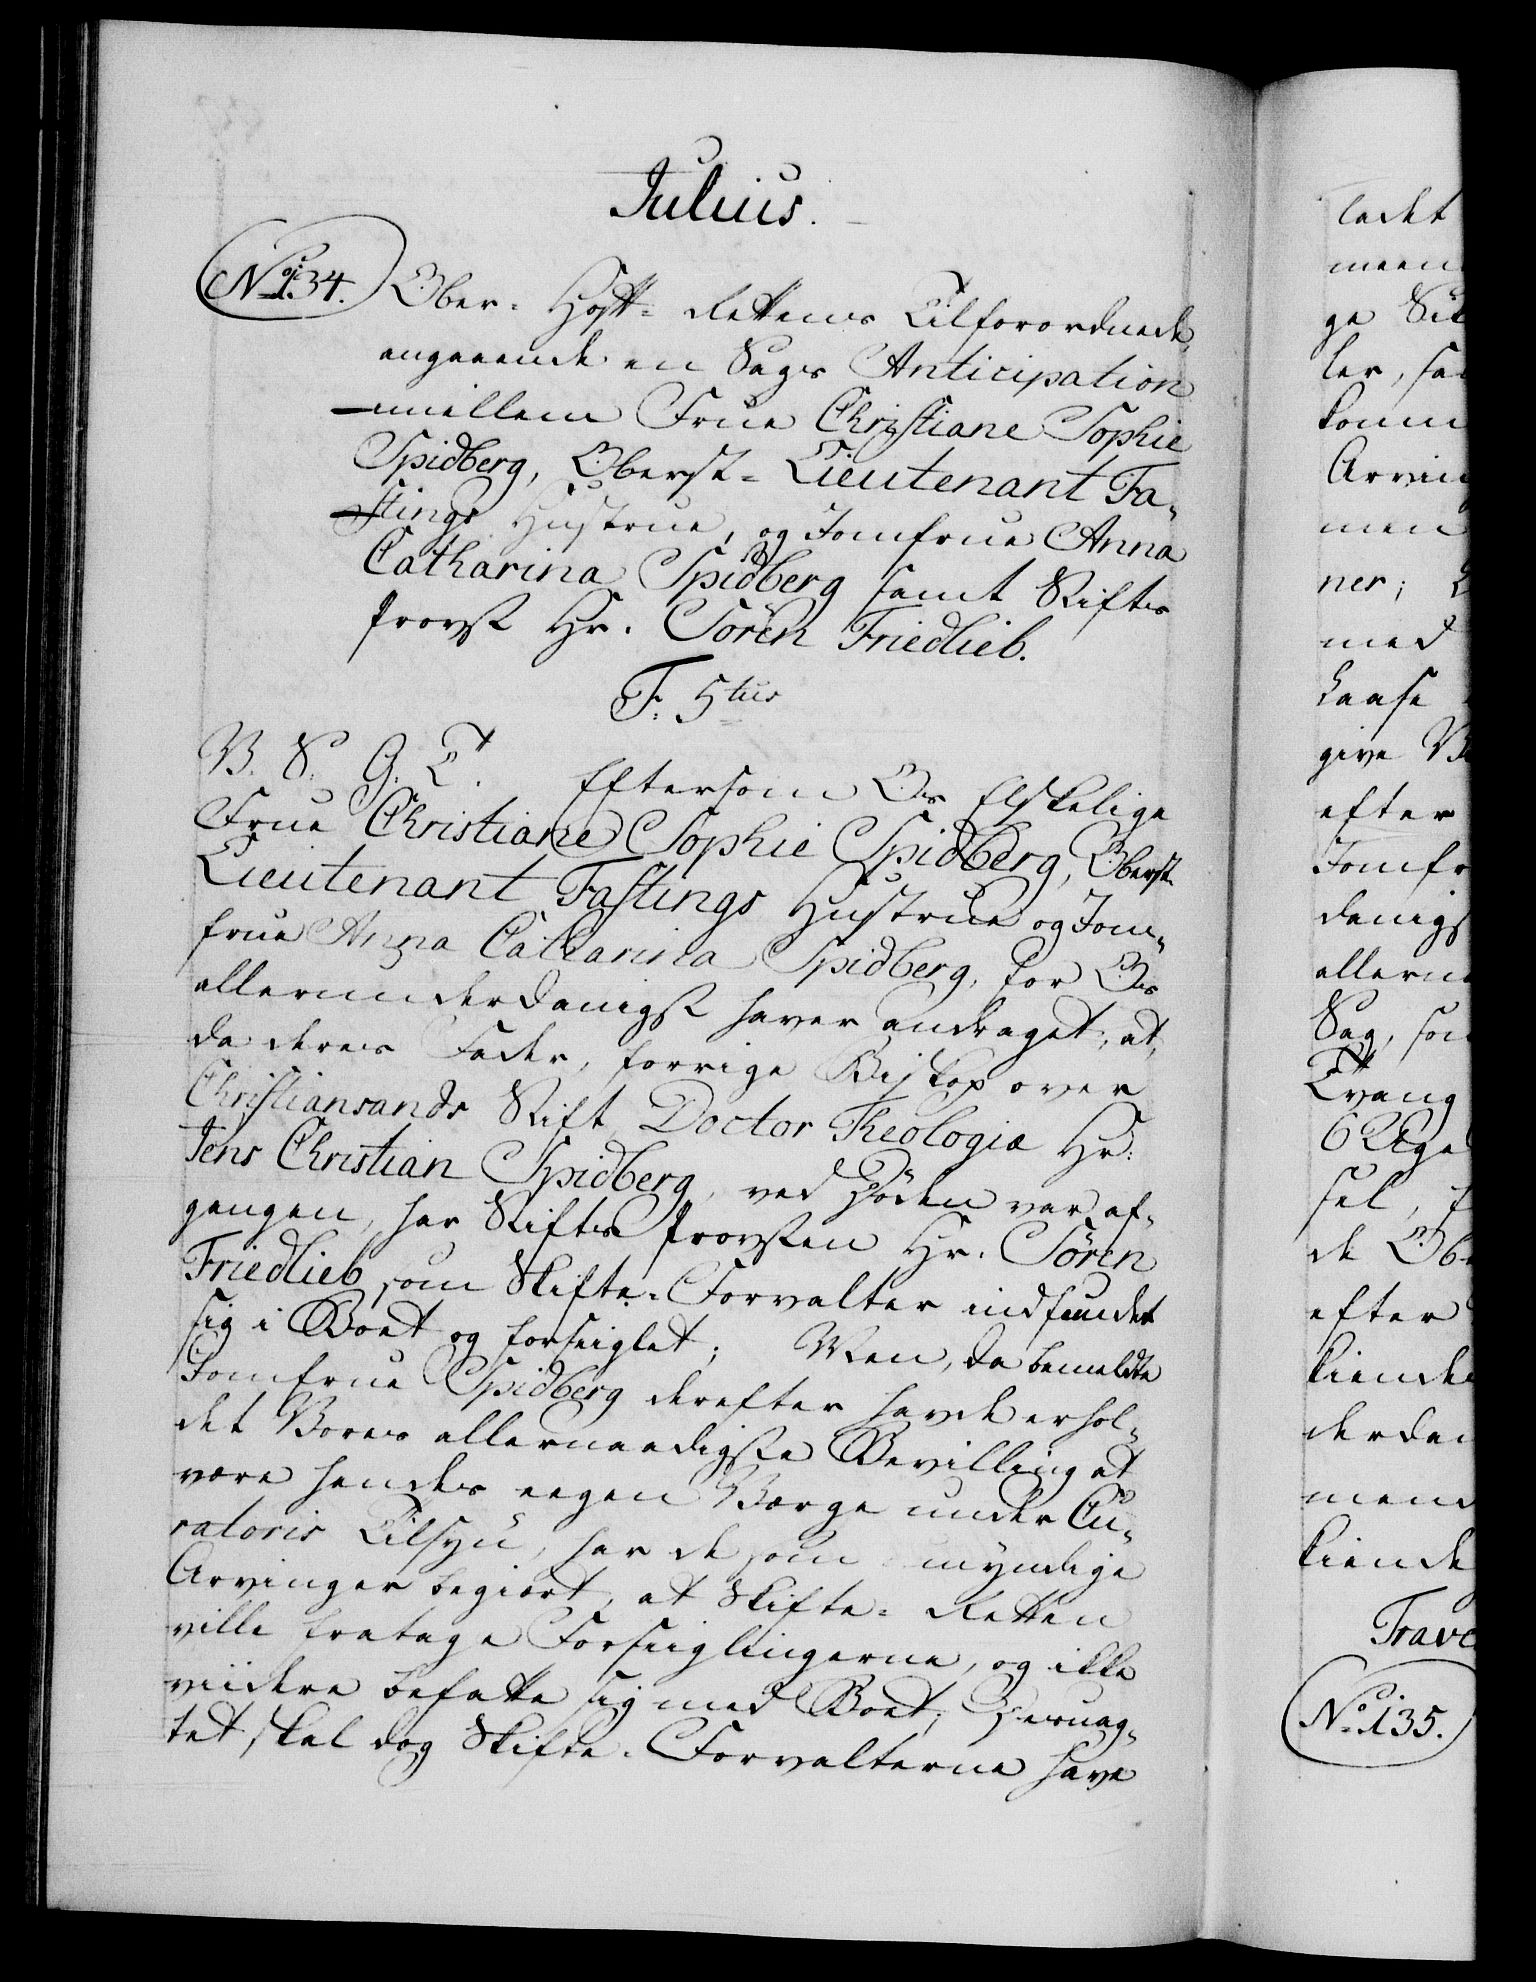 Julius.
No. 134. Ober-Hoff-Rettens Tilforordnede,
angaaende en Sags Anticipation
imellem Frue Christiane Sophie
Spidberg, Oberst-Lieutenant Fa-
stings Hustrue, og Jomfrue Anna
Catharina Spidberg samt Stifts
Provst Hr. Sören Friedlieb.
F. 5tus
V. S. G. T. Eftersom Os Elskelige
Frue Christiane Sophie Spidberg, Oberst-
Lieutenant Fastings Hustrue og Jom-
frue Anna Catharina Spidberg, for Os
allerunderdanigst haver andraget, at,
da deres Fader, forrige Biskop over
Christiansands Stift, Doctor Theologiæ Hr:
Jens Christian Spidberg, ved Döden var af-
gangen, har Stifts Provsten Hr. Sören
Friedlieb, som Skifte-Forvalter indfundet
sig i Boet og forseiglet; Men, da bemeldte
Jomfrue Spidberg derefter havde erhol-
det Vores allernaadigste Bevilling at
være hendes eegen Værge under Cu-
ratoris Tilsyn, har de som myndige
Arvinger begiært, at Skifte-Retten
ville fratage Forseiglingerne, og ikke
viidere befatte sig med Boet; Desuag-
tet skal dog Skifte-Forvalterne have
ladet
meen
ge
ler,
komm
Arvin
men
ner;
med
kaase
give
efter
Jomfr
danigs
allern
Sag, som
Tvang
6 Uge
sel,
de Ob
efter
kiende
derdan
mend
kiende
Trave
No. 135.